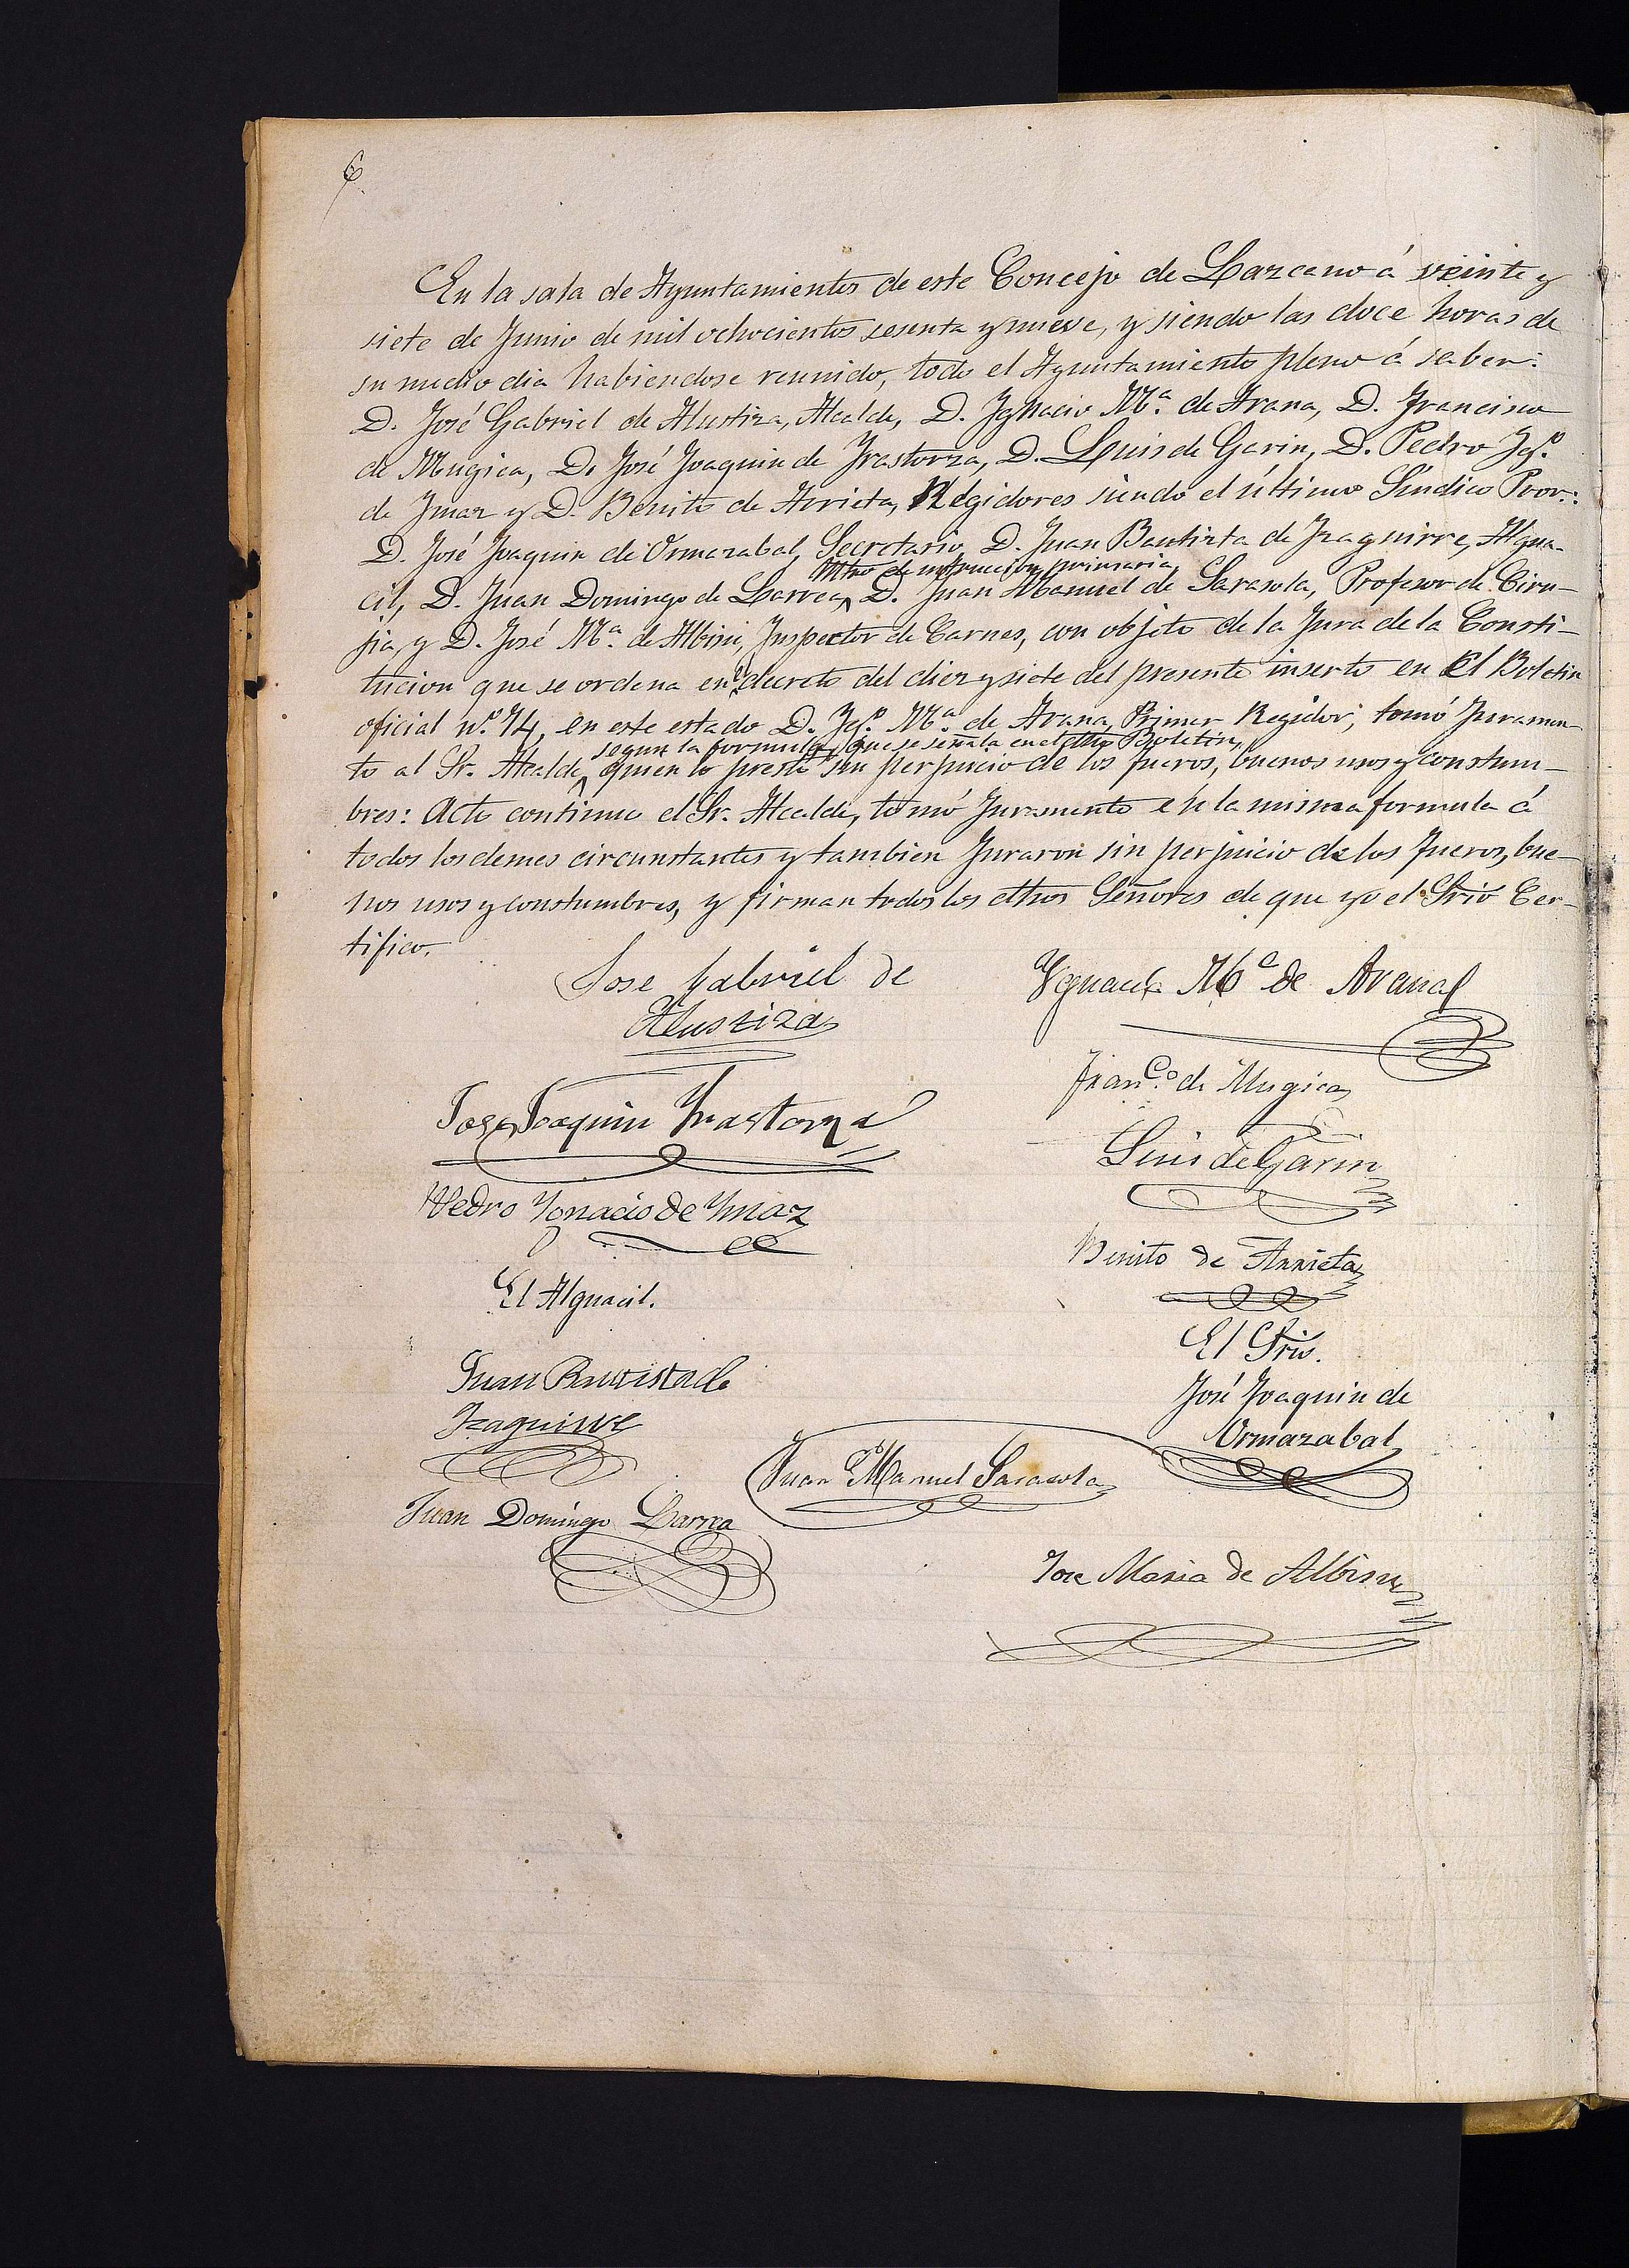 6
En la sala de Ayuntamientos de este Concejo de Lazcano á veinte y
siete de Junio de mil ochocientos sesenta y nueve, y siendo las doce horas de
su medio dia habiendose reunido, todo el Ayuntamiento pleno á saber:
D. José Gabriel de Alustiza, Alcalde, D. Ignacio Mª. de Arana, D. Francisco
de Mugica, D. José Joaquin de Irastorza, D. Luis de Garin, D. Pedro Igº.
de Imaz y D. Benito de Arrieta, Regidores siendo el último Síndico Pror.:
D. José Joaquin de Ormazabal, Secretario, D. Juan Bautista de Izaguirre, Algua-
Mtro de instruccion primaria,
cil, D. Juan Domingo de Larrea, D. Juan Manuel de Sarasola, Profesor de Ciru-
jia, y D. José Mª. de Albisu, Inspector de Carnes, con objeto de la Jura de la Consti-
tucion que se ordena en decreto del diez y siete del presente inserto en El Boletin
oficial nº. 74, en este estado D. Igº. Mª. de Arana, Primer Regidor, tomó Juramen-
segun la formula que se señala en el dho Boletin,
to al Sr. Alcalde, quien lo prestó sin perjuicio de los fueros, buenos usos y constum-
bres: Acto continuo el Sr. Alcalde, tomó Juramento en la misma formula á
todos los demes circunstantes y tambien Juraron sin perjuicio de los fueros, bue-
nos usos y constumbres, y firman todos los dhos Señores de que yo el Srio Cer-
tifico.
Jose Gabriel de
Alustiza
Ygnacio Mª de Arana
Franco. de Mugica
Jose Joaquin Yrastorza
Luis de Garin
Pedro Ygnacio de Ymaz
Benito de Arrieta
El Alguacil.
El Srio.
Juan Bautista de
Izaguirre
José Joaquin de
Ormazabal
Juan Manuel Sarasola
Juan Domingo Larrea
Jose Maria de Albisu